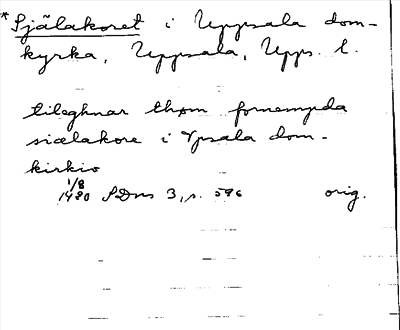 *Själakoret i Uppsala dom-
kyrka, Uppsala, Upps. l.
tileghnar thøm fornempda
siælakore i Vpsala dom-
kirkio
1/8
1480 SDns 3, s. 596 orig.